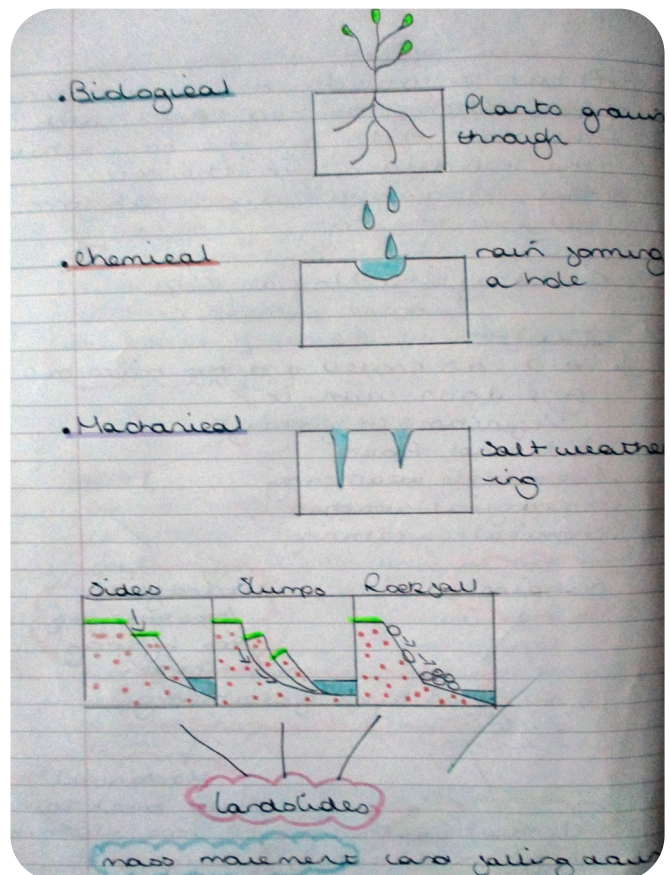 .Biological
Plants grown
through
.chemical
rain forming
a hole
.Machanical
Salt weather
-ing
Slides Slumps Rockfall
landslides
mass movement land falling down